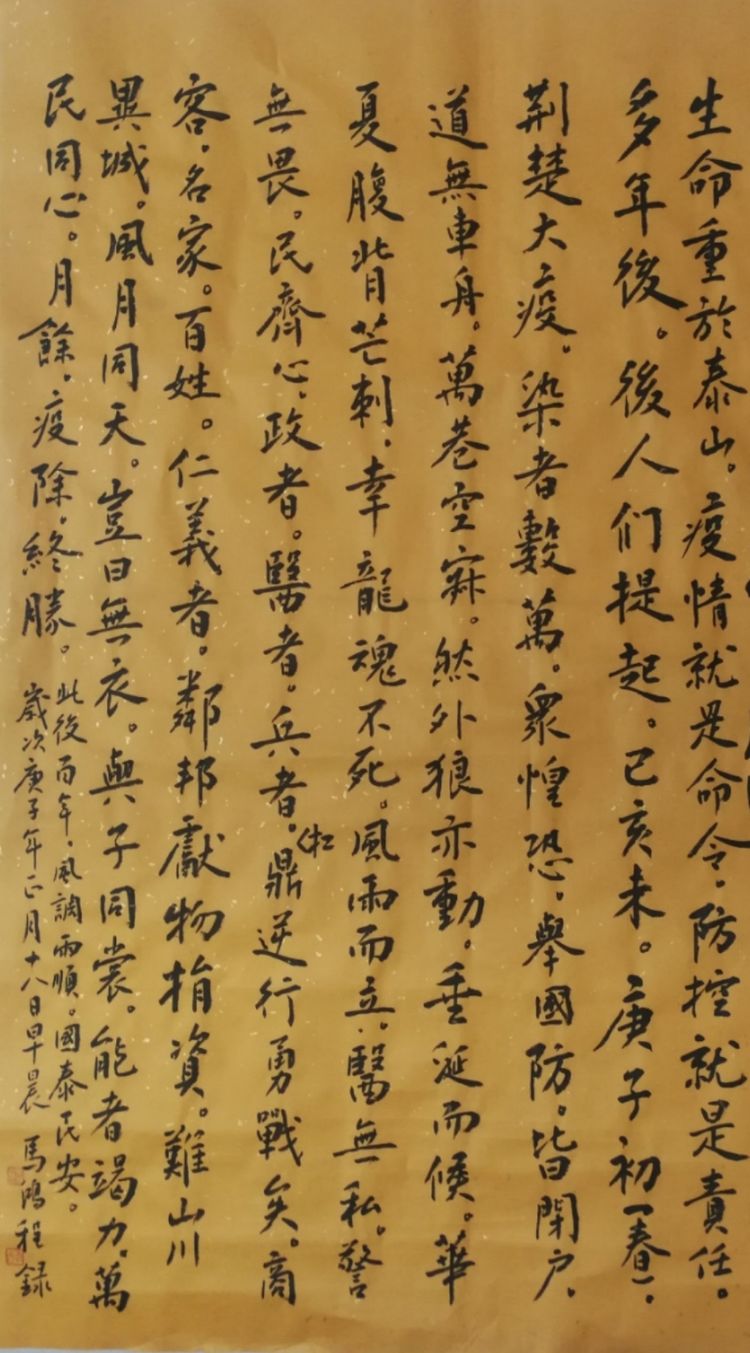 生命重於泰山。疫情就是命令，防控就是責任。
多年後。後人们提起。己亥末。庚子初（春）。
荆楚大疫。染者數萬。衆惶恐。舉國防。皆閉户。
道無車舟。萬巷空寂。然外狼亦動。垂涎而候。華
夏腹背芒刺，幸龍魂不死。風雨而立。醫無私。警
無畏。民齊心，政者。醫者。兵者。扛鼎逆行勇戰矣。商
客，名家。百姓。仁義者。鄰邦獻物捐資。難山川
異域。風月同天。豈曰無衣。與子同裳。能者竭力。萬
民同心。月餘。疫除。終勝。
此後百年，風調雨順。國泰民安。
歲次庚子年正月十八日早晨 馬鴻程録